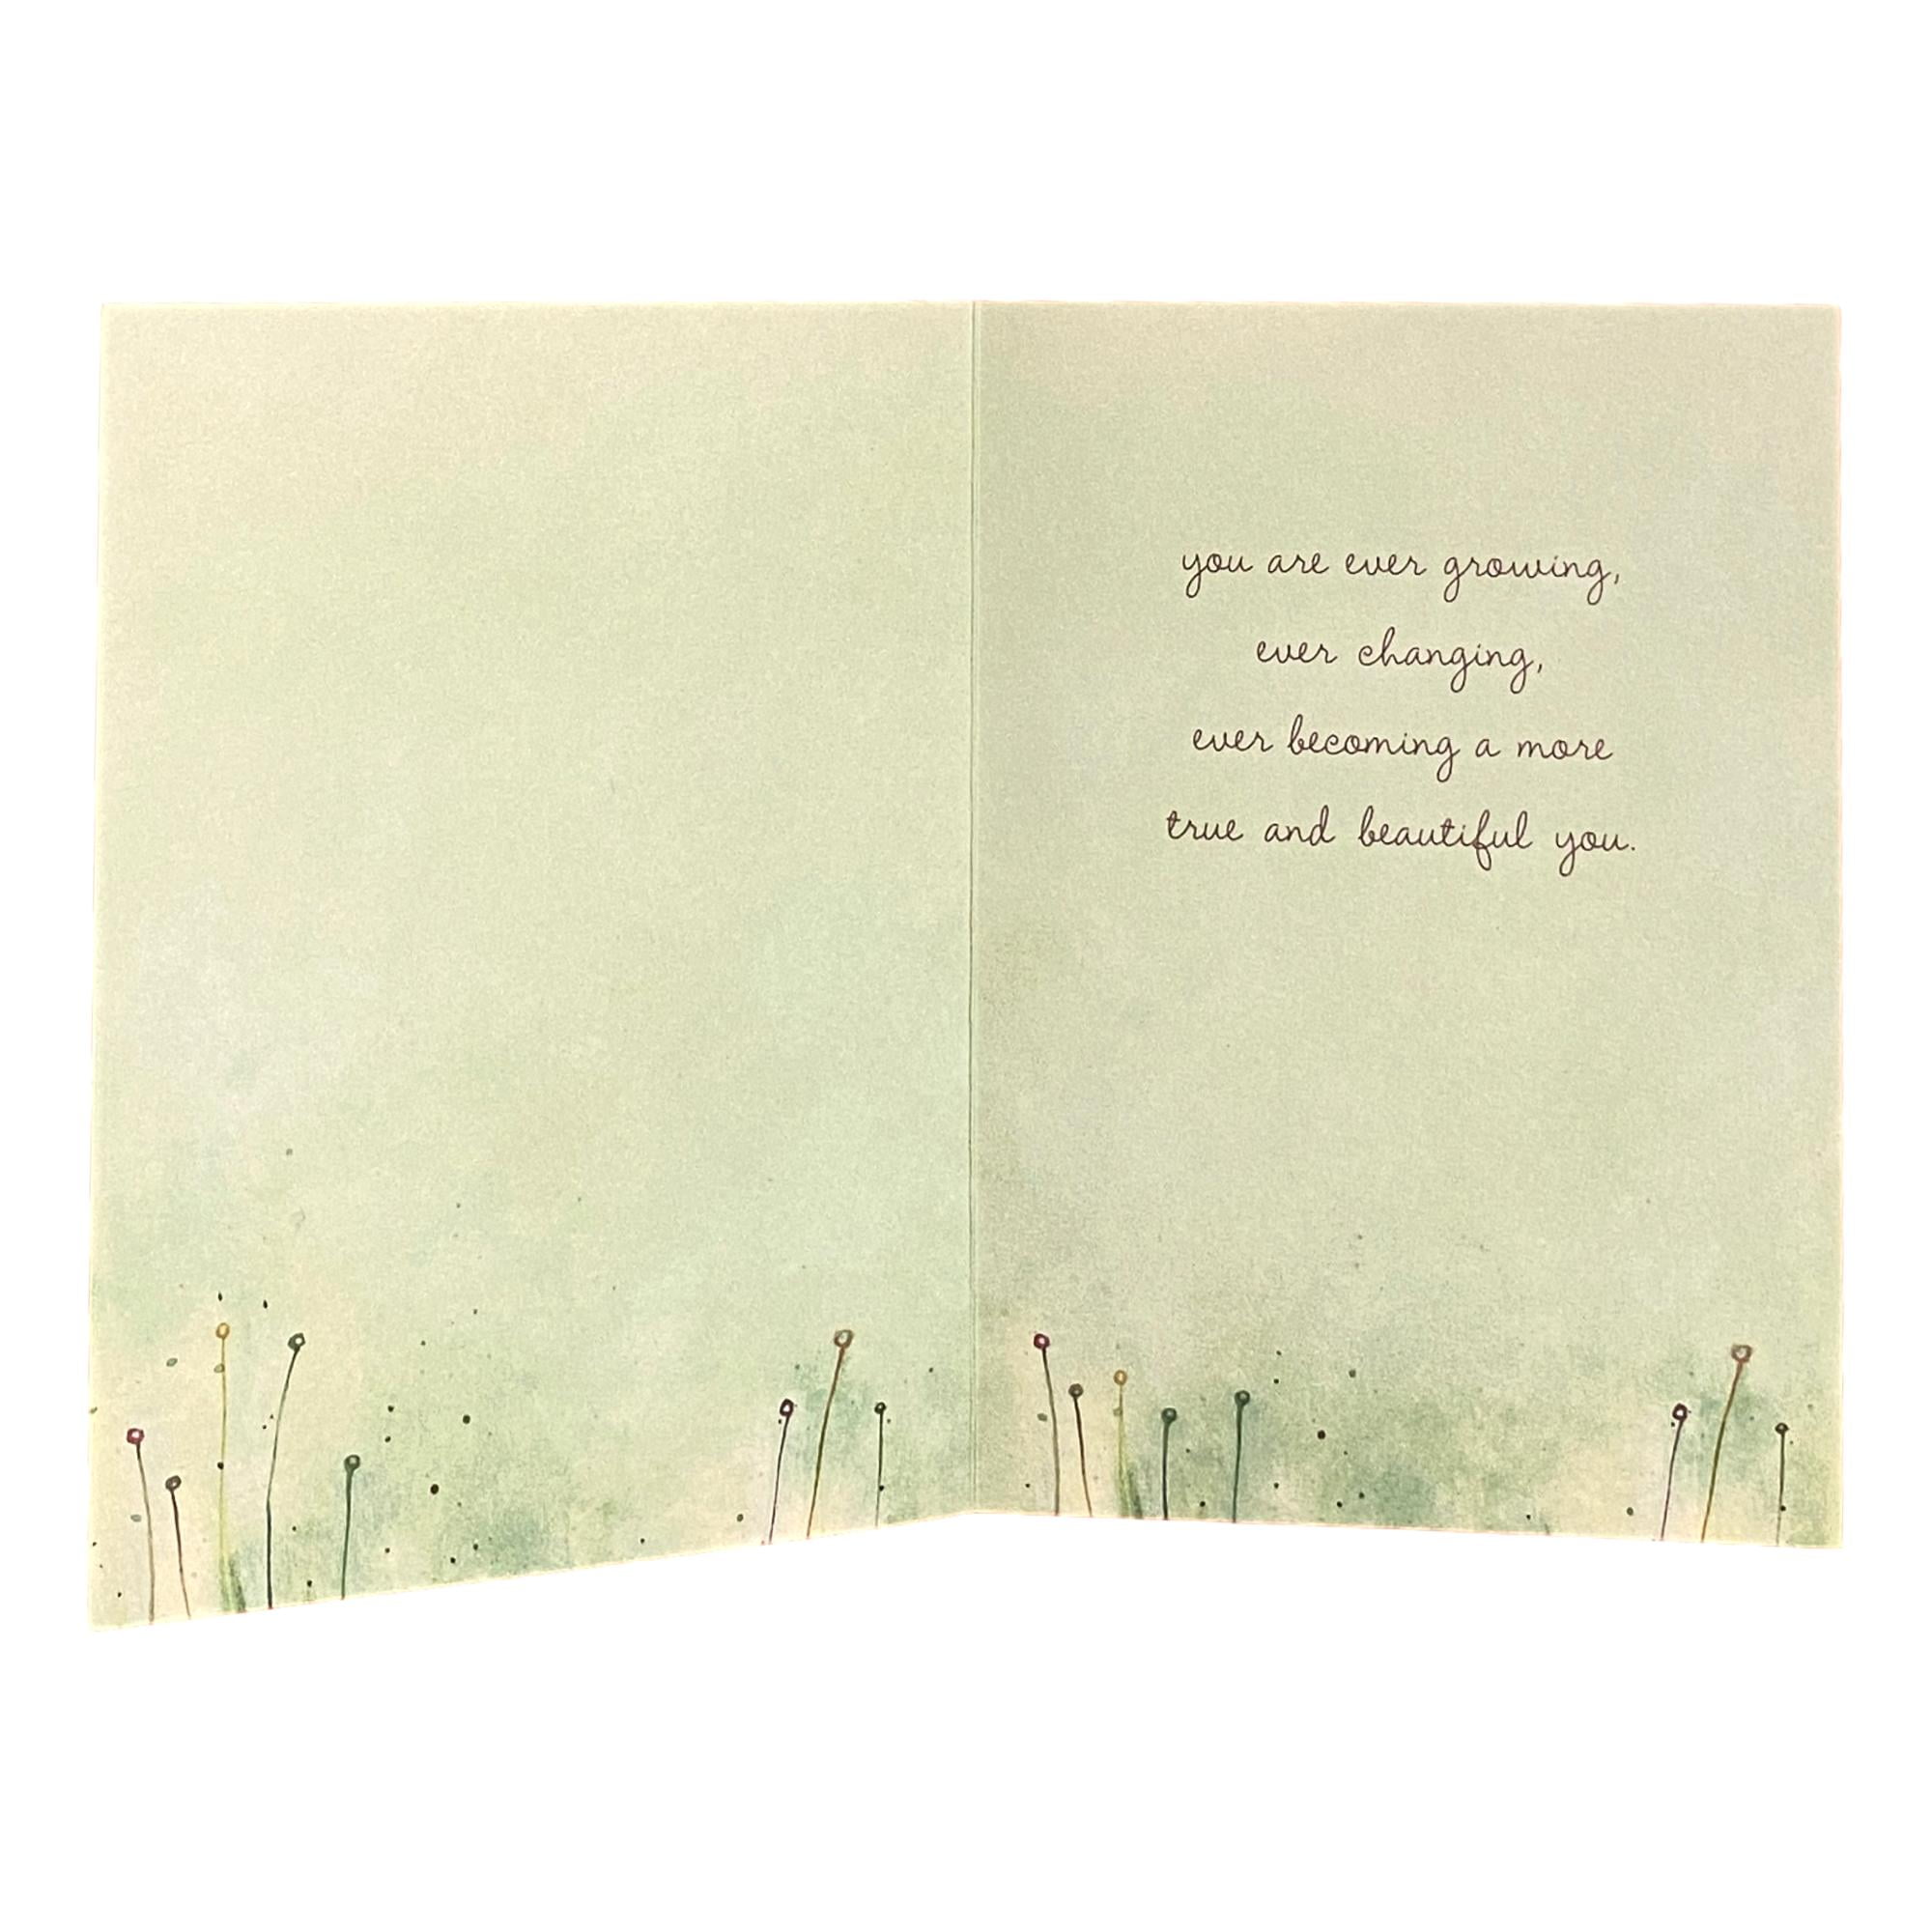 you are ever growing,
ever changing,
ever becoming a more
true and beautiful you.